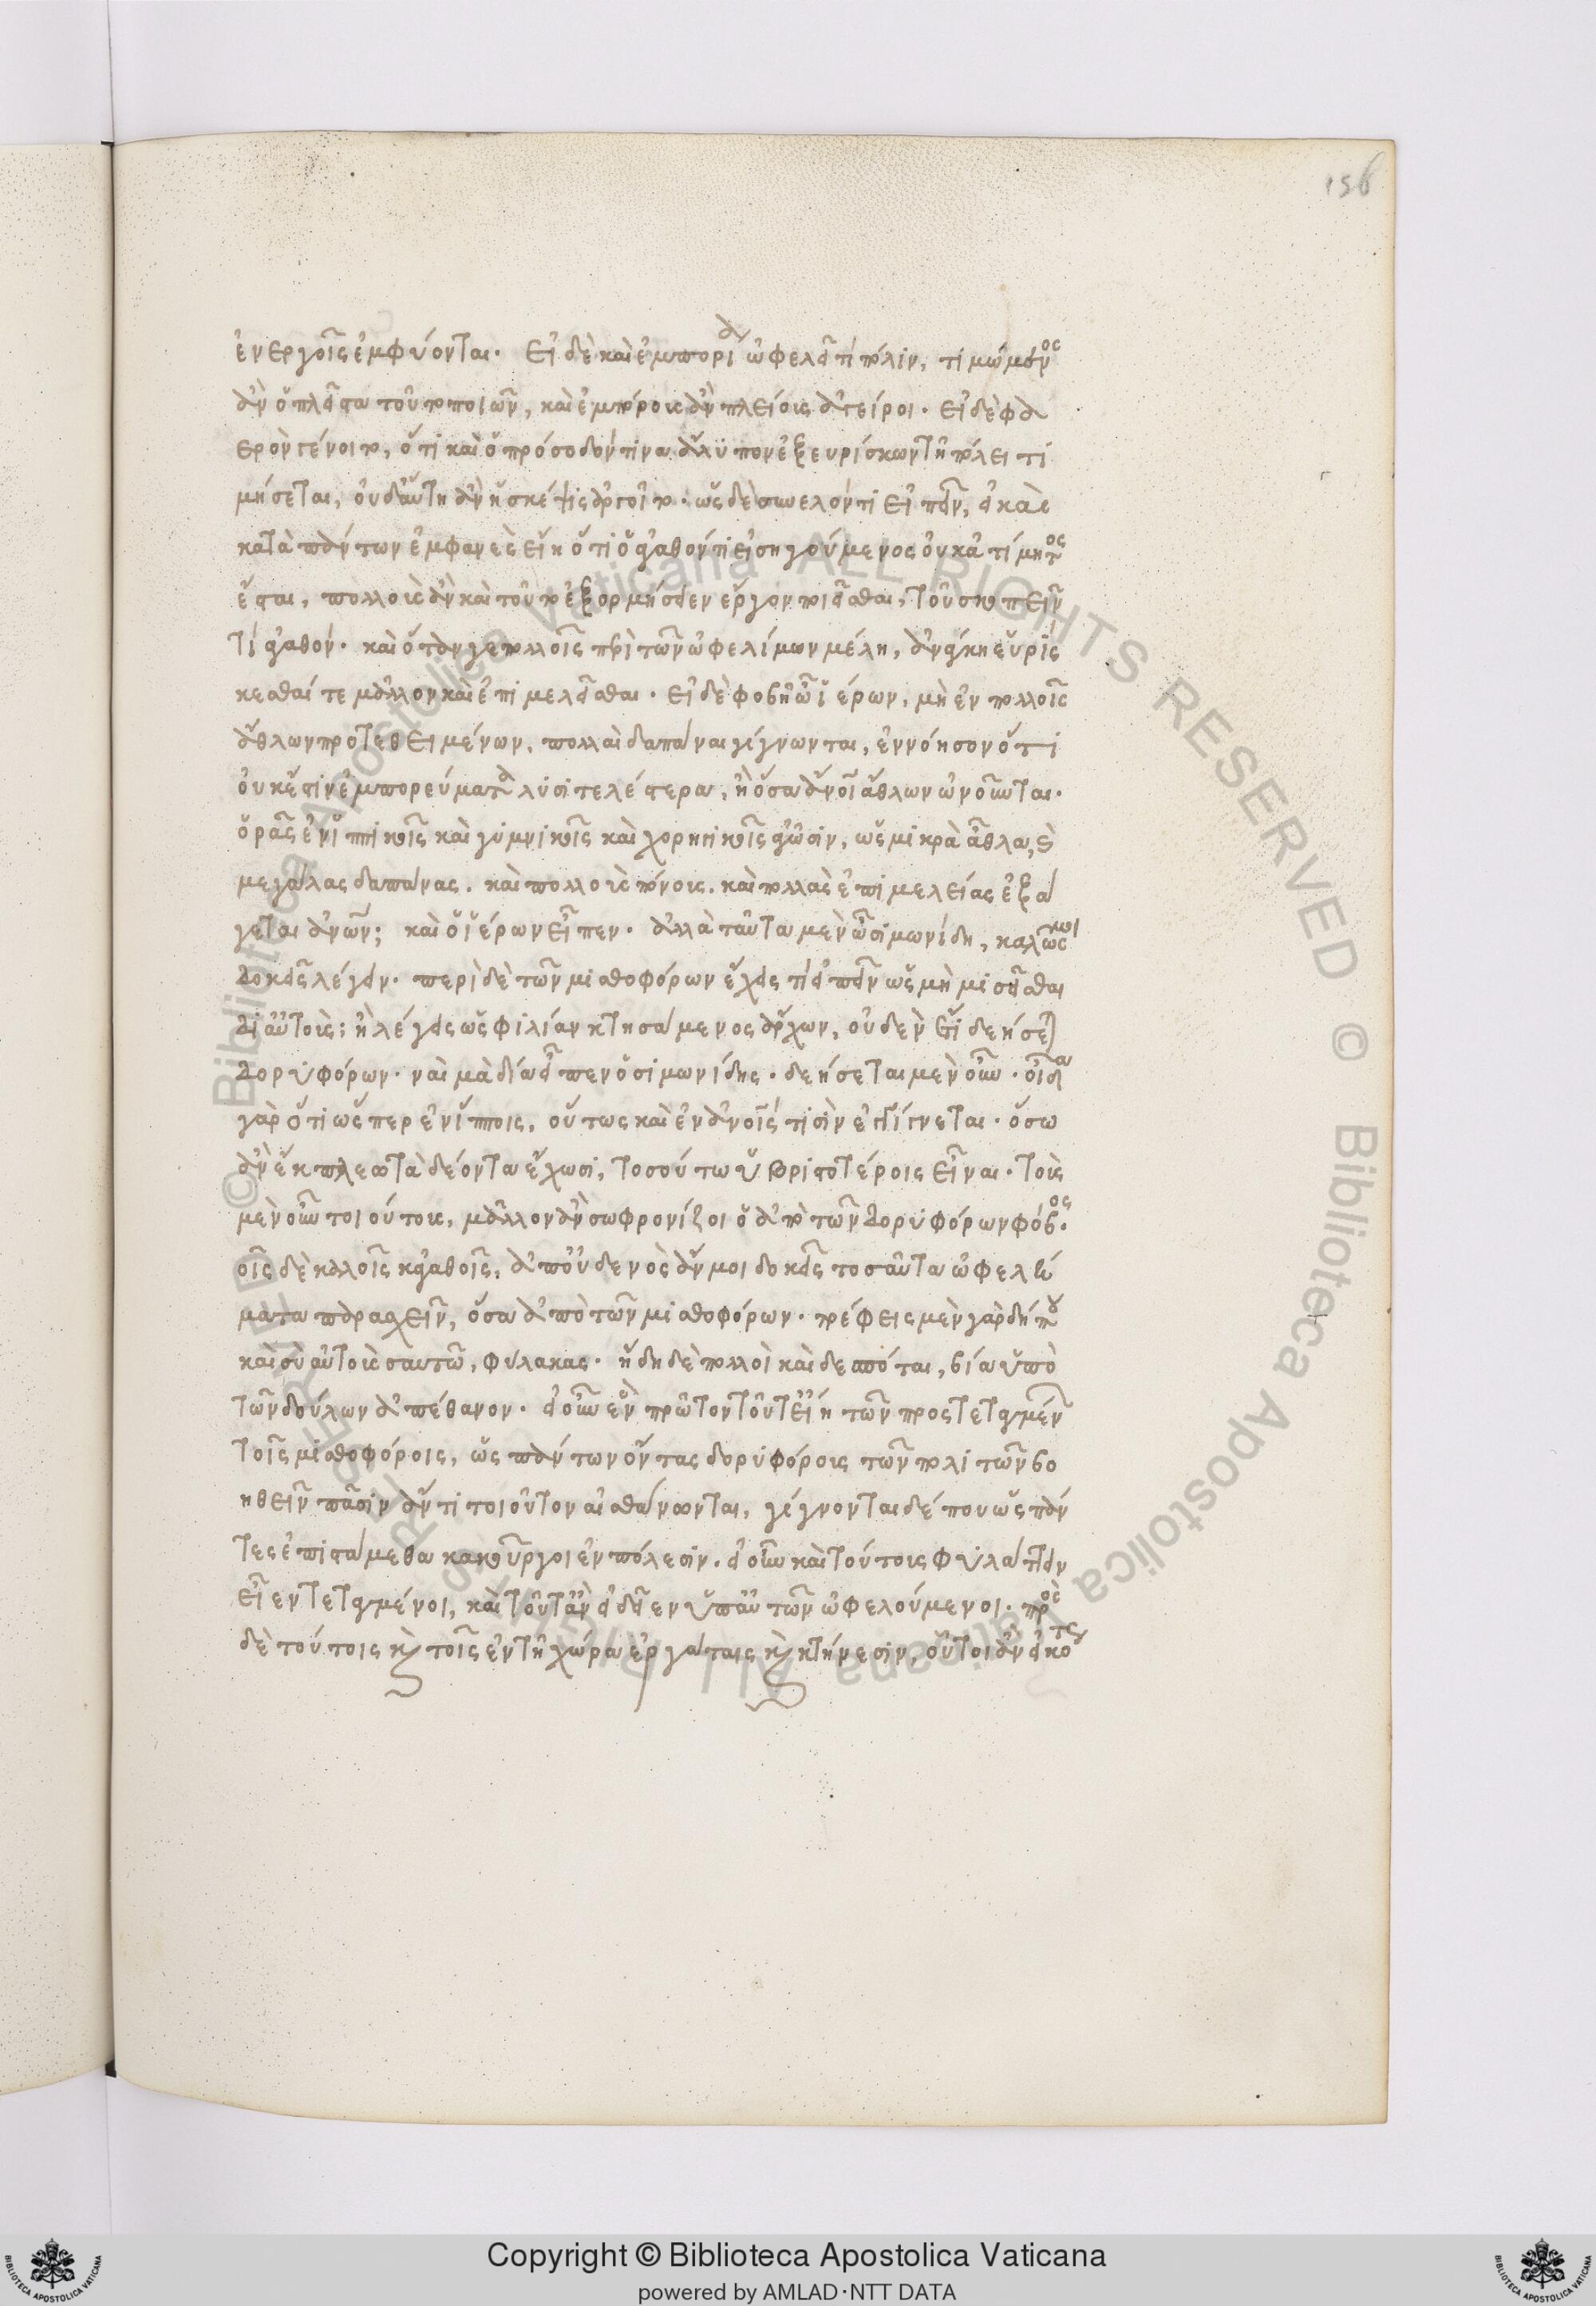 156
ἐνεργοῖς ἐμφύονται. Εἰ δὲ καὶ ἐμπορία ὠφελεῖ τι πόλιν, τιμώμενος
ἂν ὁ πλεῖστα τοῦτο ποιῶν, καὶ ἐμπόρους ἂν πλείους ἀγείροι. εἰ δὲ φα
ερὸν γένοιτο, ὅτι καὶ ὁ πρόσοδόν τινα ἄλυπον ἐξευρίσκων τῇ πόλει τι
μήσεται, οὐδ' αὕτη ἂν ἡ σκέψις ἀργοῖτο. ὡς δὲ συνελόντι εἰπεῖν, εἰ καὶ
κατὰ πάντων ἐμφανὲς εἴη ὅτι ὁ ἀγαθόν τι εἰσηγούμενος οὐκ ἀτίμητος
ἔσται, πολλοὺς ἂν καὶ τοῦτο ἐξορμήσειεν ἔργον ποιεῖσθαι, τοῦ σκοπεῖν
τι ἀγαθόν. καὶ ὅταν γε πολλοῖς περὶ τῶν ὠφελίμων μέλη, ἀνάγκη εὑρίς
κεσθαί τε μᾶλλον καὶ ἐπιμελεῖσθαι. εἰ δὲ φοβῇ ὦ ἱέρων, μὴ ἐν πολλοῖς
ἄθλων προτεθειμένων, πολλαὶ δαπάναι γίγνωνται, ἐννόησον ὅτι
οὐκ ἔστιν ἐμπορεύματα λυσιτελέστερα, ἢ ὅσα ἄνοι ἄθλων ὠνοῦνται.
ὁρᾷς ἐν ἱππικοῖς καὶ γυμνικοῖς καὶ χορηγικοῖς ἀγῶσιν, ὡς μικρὰ ἆθλα,
μεγάλας δαπάνας. καὶ πολλοὺς πόνους. καὶ πολλὰς ἐπιμελείας ἐξά
γεται ἀνῶν; καὶ ὁ ἱέρων εἶπεν. ἀλλὰ ταῦτα μὲν ὦ σιμωνίδη, καλῶς μοι
δοκεῖς λέγειν. περὶ δὲ τῶν μισθοφόρων ἔχεις τι εἰπεῖν ὡς μὴ μισεῖσθαι
δι' αὐτούς; ἢ λέγεις ὡς φιλίαν κτησάμενος ἄρχων, οὐδὲν ἔτι δεήσεται
δορυφόρων. ναὶ μὰ δία εἶπεν ὁ σιμωνίδης. δεήσεται μὲν οὖν. οἶδα
γὰρ ὅτι ὥσπερ ἐν ἵπποις, οὕτως καὶ ἐν ἀνοις τισὶν ἐγγίγνεται. ὅσω
ἂν ἔκπλεω τὰ δέοντα ἔχωσι, τοσούτω ὑβριστοτέροις εἶναι. τοὺς
μὲν οὖν τοιούτους, μᾶλλον ἂν σωφρονίζοι ὁ ἀπὸ τῶν δορυφόρων φόβος.
τοῖς δὲ καλοῖς κἀγαθοῖς, ἀπ' οὐδενὸς ἄν μοι δοκεῖς τοσαῦτα ὠφελή
ματα παρασχεῖν, ὅσα ἀπὸ τῶν μισθοφόρων. τρέφεις μὲν γὰρ δήπου
καὶ σὺ αὐτοὺς σαυτῶ, φύλακας. ἤδη δὲ πολλοὶ καὶ δεσπόται, βία ὑπὸ
τῶν δούλων ἀπέθανον. εἰ οὖν ἓν πρῶτον τοῦτ' εἴη τῶν προστεταγμένων
τοῖς μισθοφόροις, ὡς πάντων ὄντας δορυφόρους τῶν πολιτῶν βο
ηθεῖν πᾶσιν ἄν τι τοιοῦτον αἰσθάνωνται, γίγνονται δέ που ὡς πάν
τες ἐπιστάμεθα κακοῦργοι ἐν πόλεσιν. εἰ οὖν καὶ τούτους φυλάττειν
εἶεν τεταγμένοι, καὶ τοῦτ' ἂν εἰδεῖεν ὑπ' αὐτῶν ὠφελούμενοι. πρὸς
δὲ τούτοις καὶ τοῖς ἐν τῇ χώρα ἐργάταις καὶ κτήνεσιν, οὗτοι ἂν εἰκότως